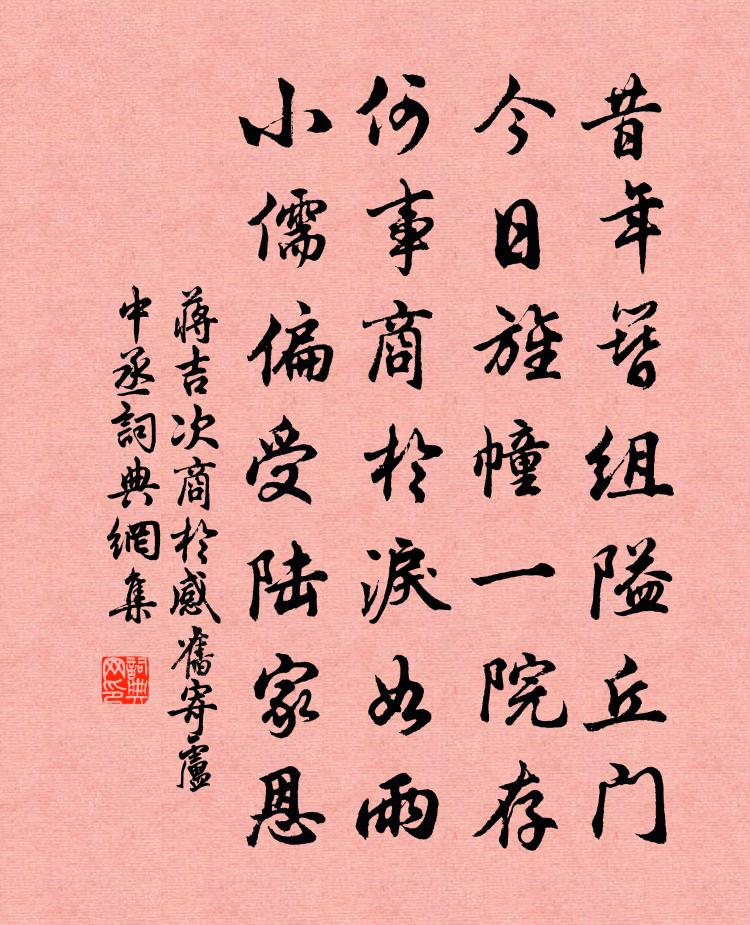 昔年簪組隘丘门
今日旌幢一院存
何事商於淚如雨
小儒偏受陆家恩
蔣吉次商於感舊寄盧
中丞詞典網集
詞典
网印